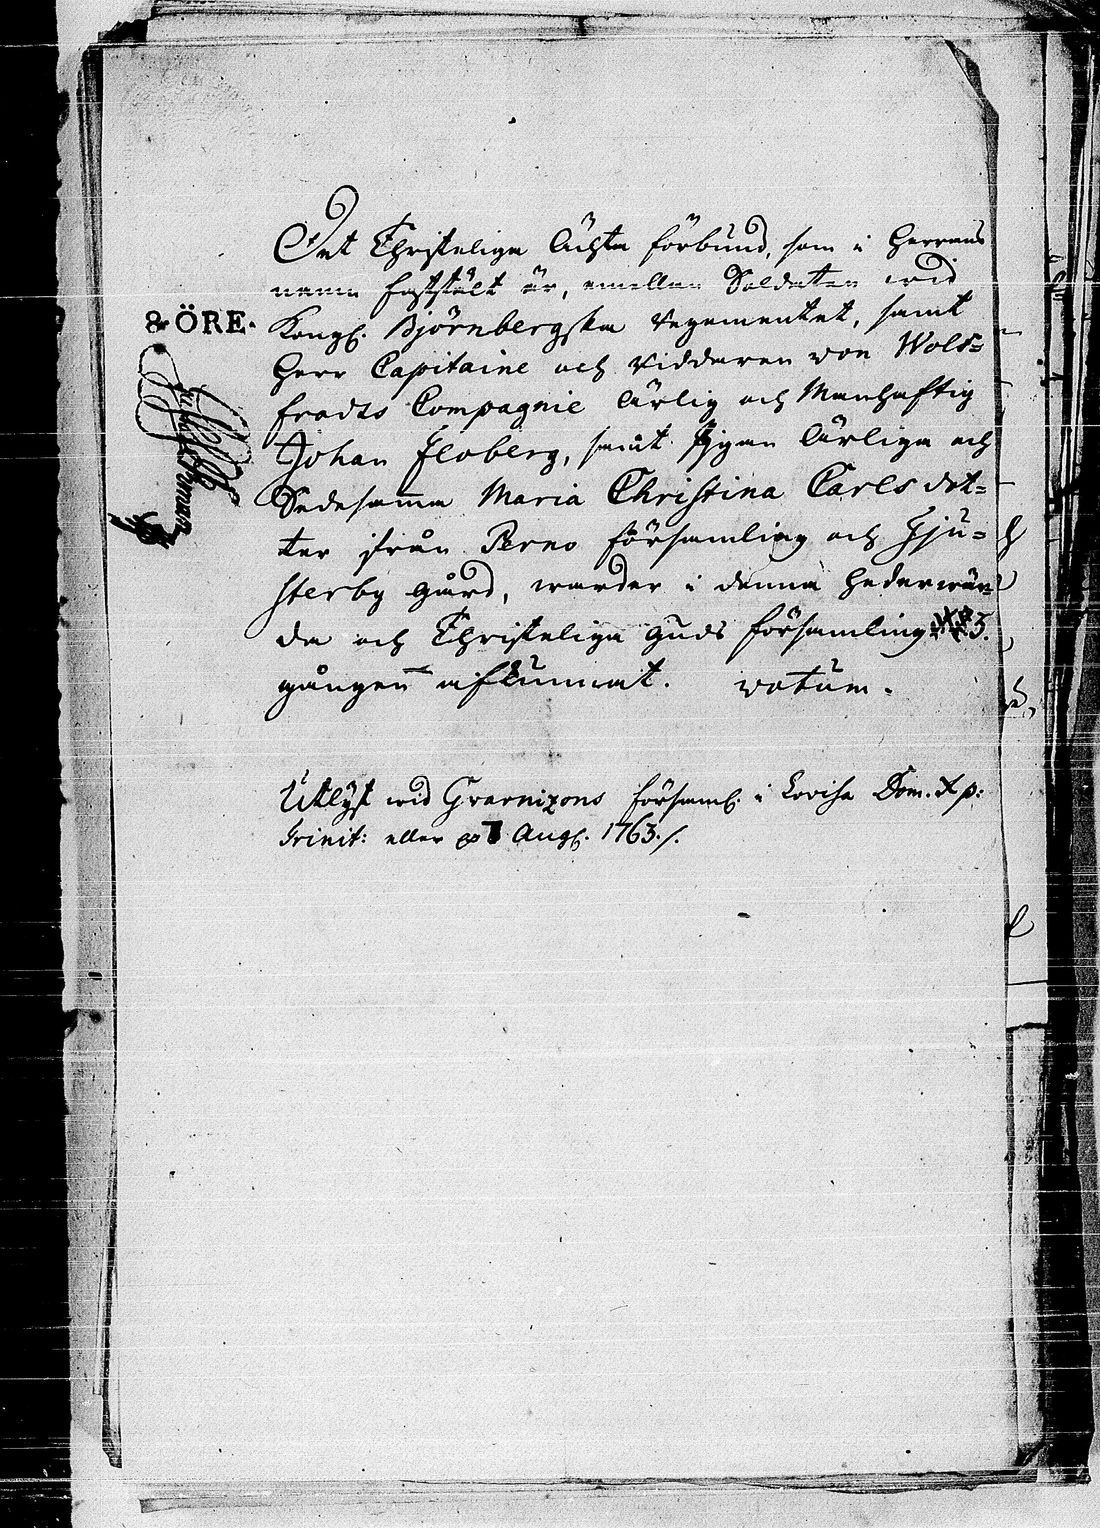 Det Christeliga Ächta förbund, som i Herrans
namn faststält är, emellan Soldaten wid
8 ÖRE.
Kongl. Björnbergska Regementet, samt
Herr Capitaine och Riddaren von Wols=
fradts Compagnie ärlig och Manhaftig
Johan Floberg, samt Pigan ärliga och
Sedesamma Maria Christina Carls dot=
ter ifrån Perno församling och Tju=
sterby gård, warder i denna hederwär=
da och Christeliga Guds församling 3.
gången afkunnat. votum.
Utlyst wid Guarnizons församl. i Lovisa Dom. X p:
Trinit: eller 7 Aug. 1763./.